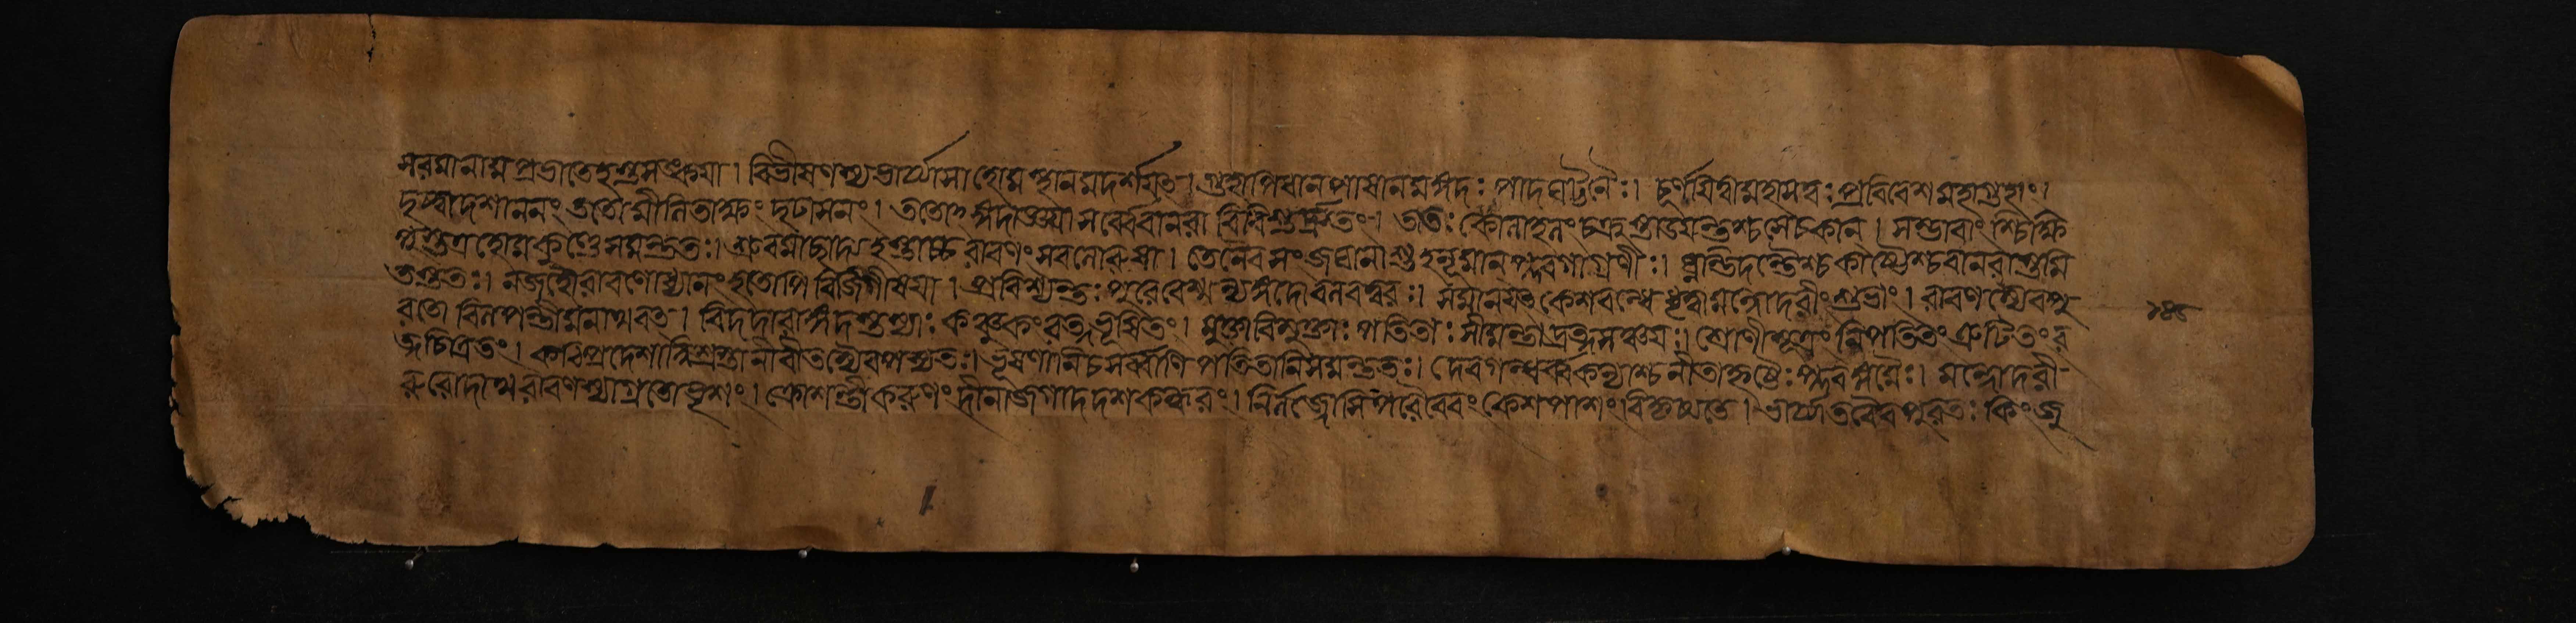 সরমানাম প্রভাতেহস্তসংজ্ঞয়া। বিভীষণস্যভার্য্যাসা হোমস্থানমদর্শয়ৎ। গুহাপিধানপাষানমঙ্গদঃ পাদঘট্টনৈঃ। চূর্ণয়িত্বামহাসত্বঃ প্রবিবেশমহাগুহাং।
দৃষ্ট্বাদশাননং তত্রোমীলিতাক্ষং দৃঢাসনং। ততোঽঙ্গদাজ্ঞয়াসর্ব্বেবানরা বিবিশুর্দ্রুতং। তত্রঃ কোলাহলং চক্রুস্তাডয়ন্তশ্চসেবকান্। সম্ভারাংশ্চিক্ষি
পুস্তত্রহোমকুণ্ডেসমন্ততঃ। শ্রুবমাছাদ্যহস্তাচ্চরাবণং সবলোরুষা। তেনৈবসংজঘানাশুহনূমানপ্লবগাগ্রণীঃ। ঘ্নন্তিদন্তৈশ্চকাষ্ঠৈশ্চবানরাস্তমি
তস্ততঃ। নজহৌরাবণোধ্যানংহতোপিবিজিগীষয়া। প্রবিশ্যন্তঃপুরেবেশ্মন্যঙ্গদোবলবত্তরঃ। সমানয়ৎকেশবন্ধেধৃত্বামন্দোদরীং শুভাং। রাবণস্যৈবপু
রতো বিলপন্তীমনাথবৎ। বিদদারাঙ্গদস্তস্যাঃ কঞ্চুকংরত্নভূষিতং। মুক্তাবিমুক্তাঃ পাতিতাঃ সীমন্তাদ্রত্নসঞ্চয়ঃ। শ্রোণীসূত্রং নিপাতিতং ত্রুটিতংর
ত্নচিত্রিতং। কটিপ্রদেশাদ্বিস্রস্তানীবীতস্যৈবপশ্যতঃ। ভূষণানিচসর্ব্বাণি পতিতানিসমন্ততঃ। দেবগন্ধর্ব্বকন্যাশ্চনীতাহৃষ্টৈঃ প্লবঙ্গমৈঃ। মন্দোদরী
রুরোদাথরাবণস্যাগ্রতোভৃশং। ক্রোশন্তীকরুণং দীনাজগাদদশকন্ধরং। নির্লজ্জোসিপরৈরেবং কেশপাশং বিকৃষ্যতে। ভার্য্যাতবৈবপুরতঃ কিংজু